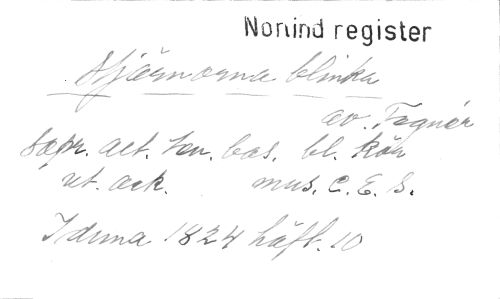 Norlind register
Stjärnorna blinka
av. Tegnér
sopr. alt. ten. bas. bl. kör
ut. ack. mus. C. E. S.
Iduna 1824 häft. 10